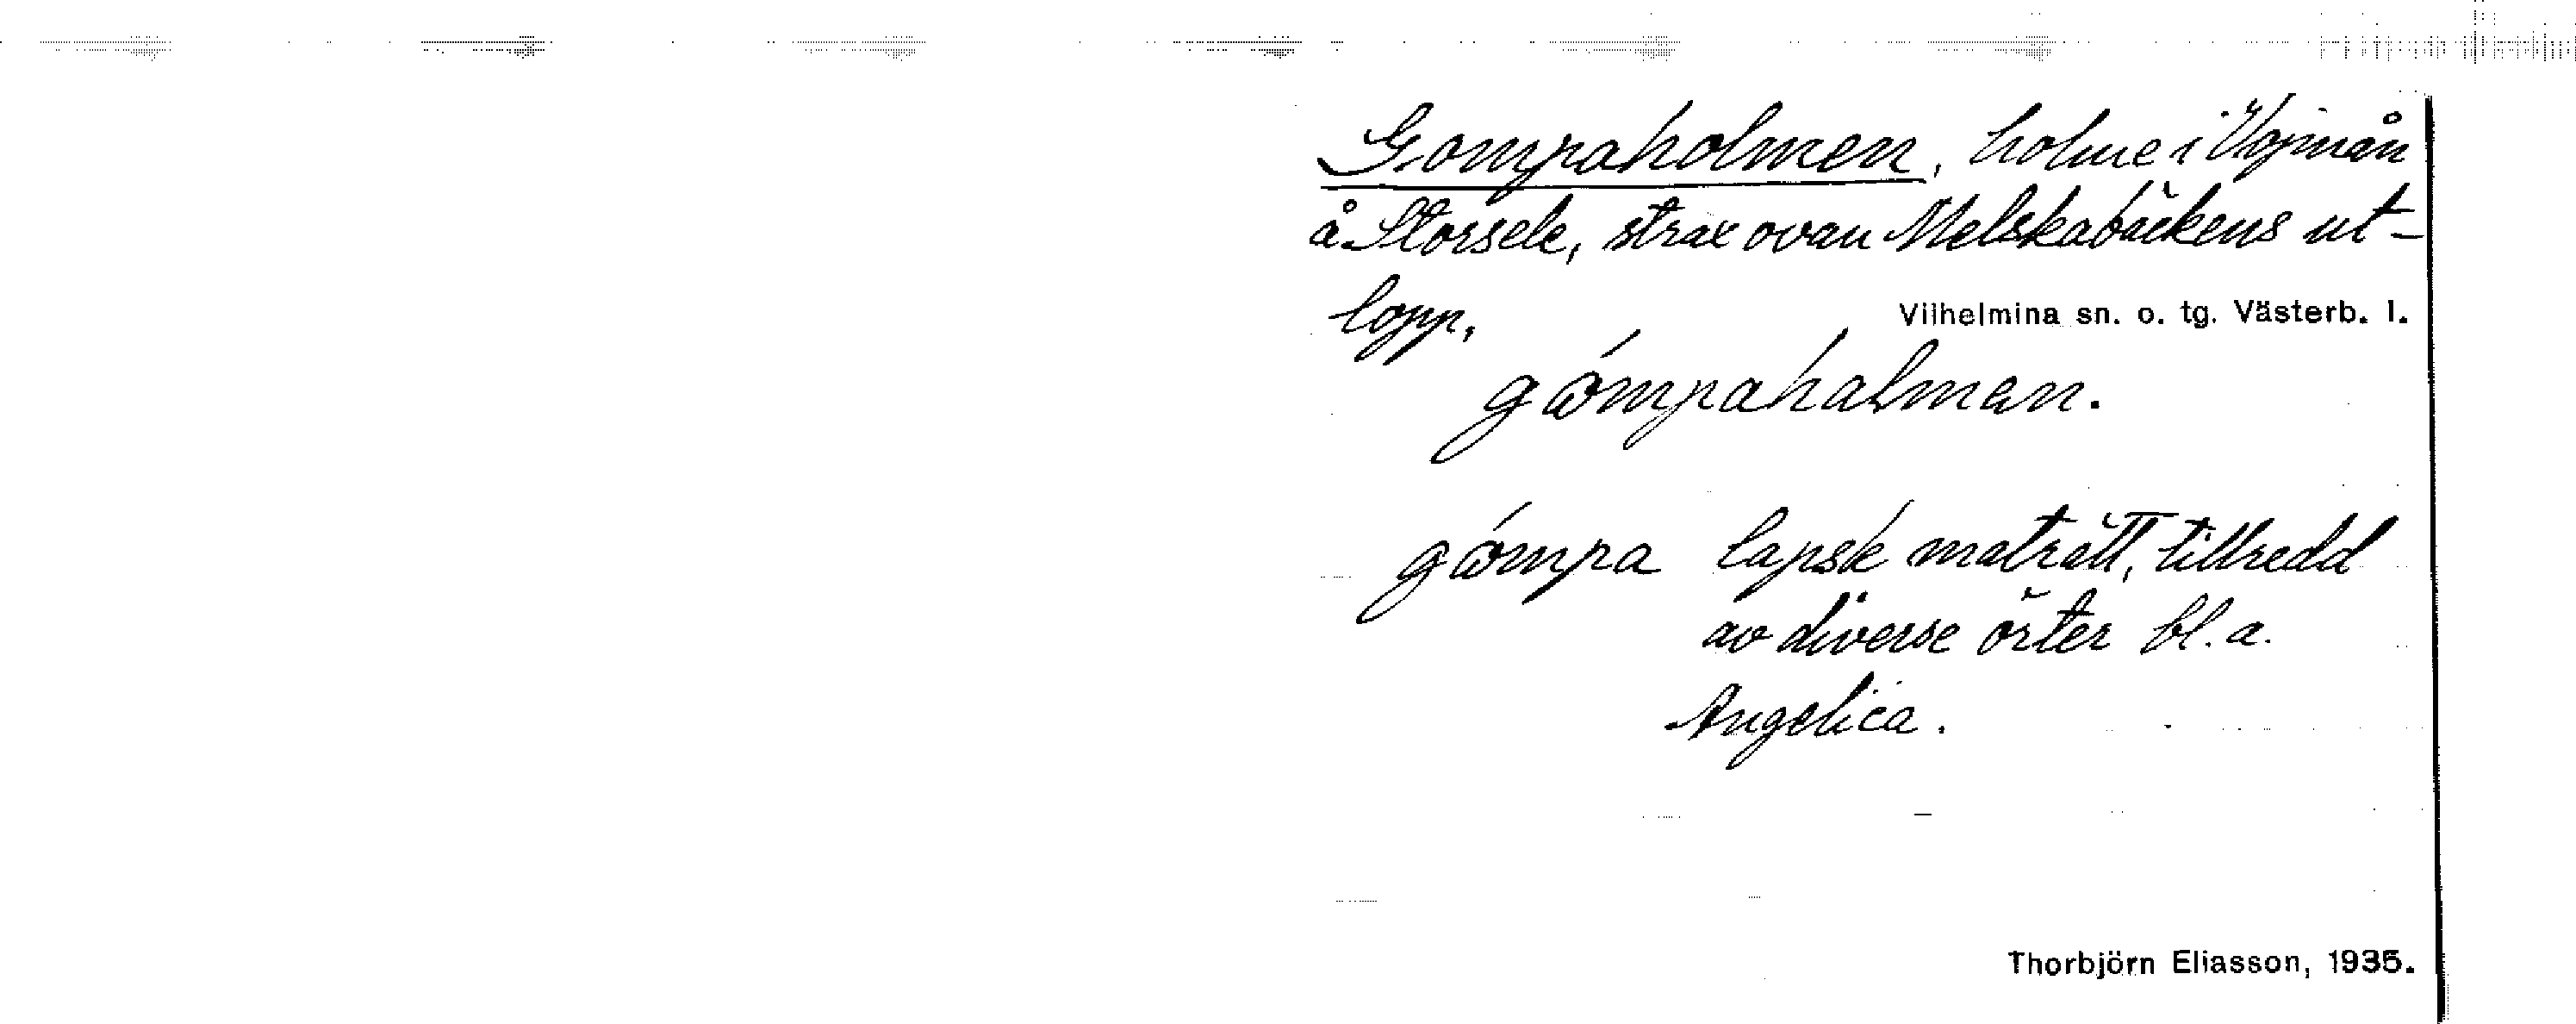 Gompaholmen, holme i Vojmån
å Storsele, strax ovan Melskabäckens ut-
lopp.
Vilhelmina sn. o. tg. Västerb. l.
gómpahalmen.
gómpa lapsk maträtt, tillredd
av diverse örter bl. a.
Angelica.
Thorbjörn Eliasson, 1935.